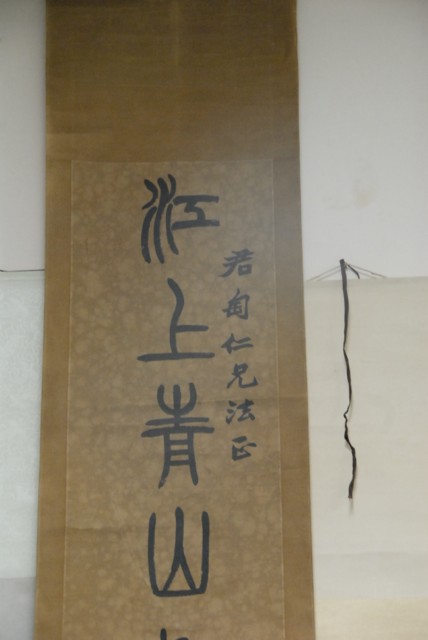 君甸仁兄法正
江上青山